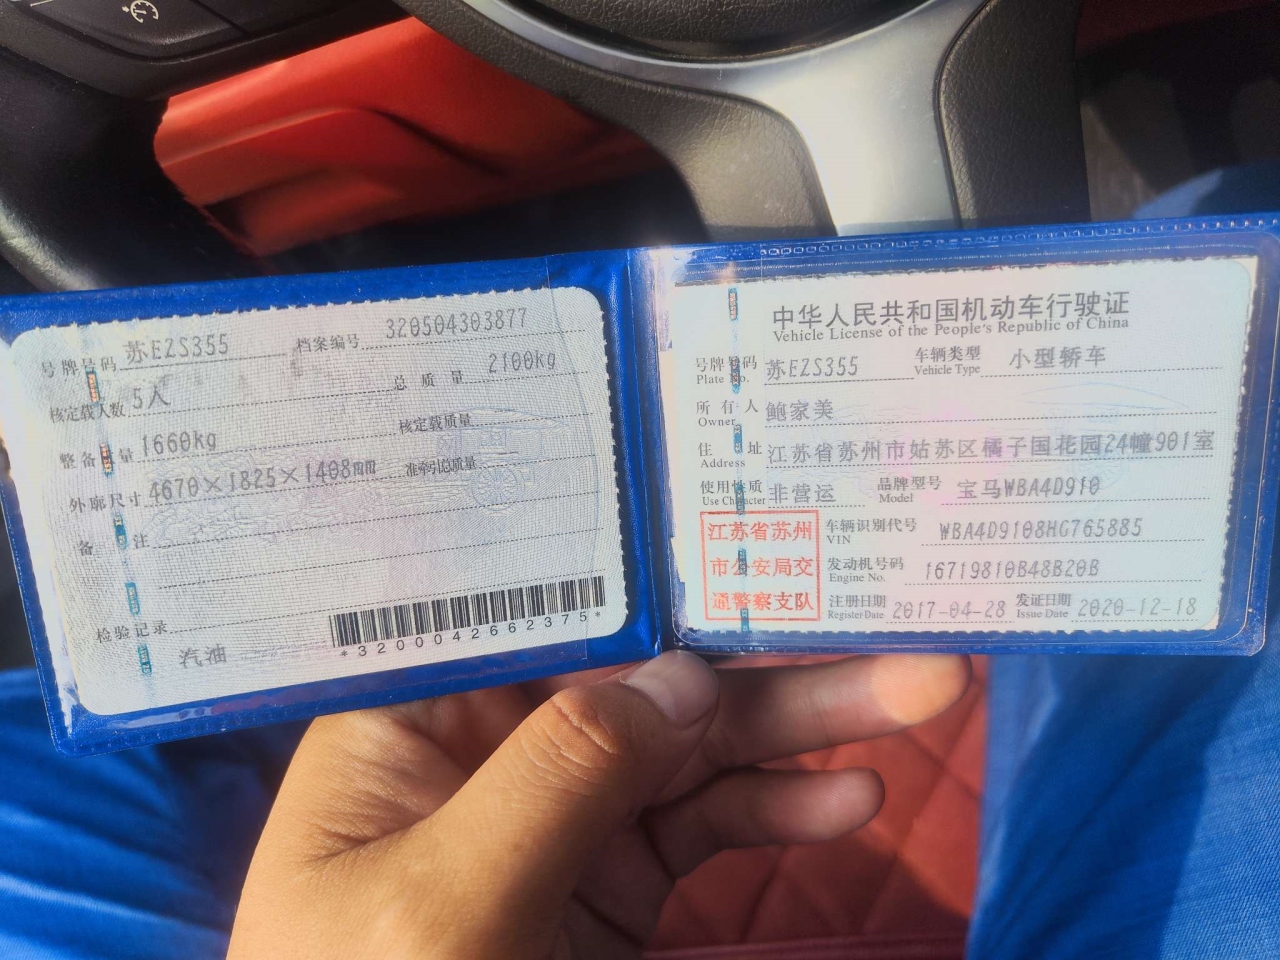 号牌号码 苏EZS355 档案编号 320504303877
核定载人数 5人 总质量 2100kg
整备质量 1660kg 核定载质量
外廓尺寸 4670×1825×1408mm 准牵引总质量
备注
检验记录
汽油
*3200042662375*
中华人民共和国机动车行驶证
Vehicle License of the People's Republic of China
号牌号码 苏EZS355 车辆类型 小型轿车
Plate No. Vehicle Type
所有人 鲍家美
Owner
住址 江苏省苏州市姑苏区橘子国花园24幢901室
Address
使用性质 非营运 品牌型号 宝马WBA4D910
Use Character Model
江苏省苏州
市公安局交
通警察支队
车辆识别代号 WBA4D9108HG765885
VIN
发动机号码 16719810B48B20B
Engine No.
注册日期 2017-04-28 发证日期 2020-12-18
Register Date Issue Date